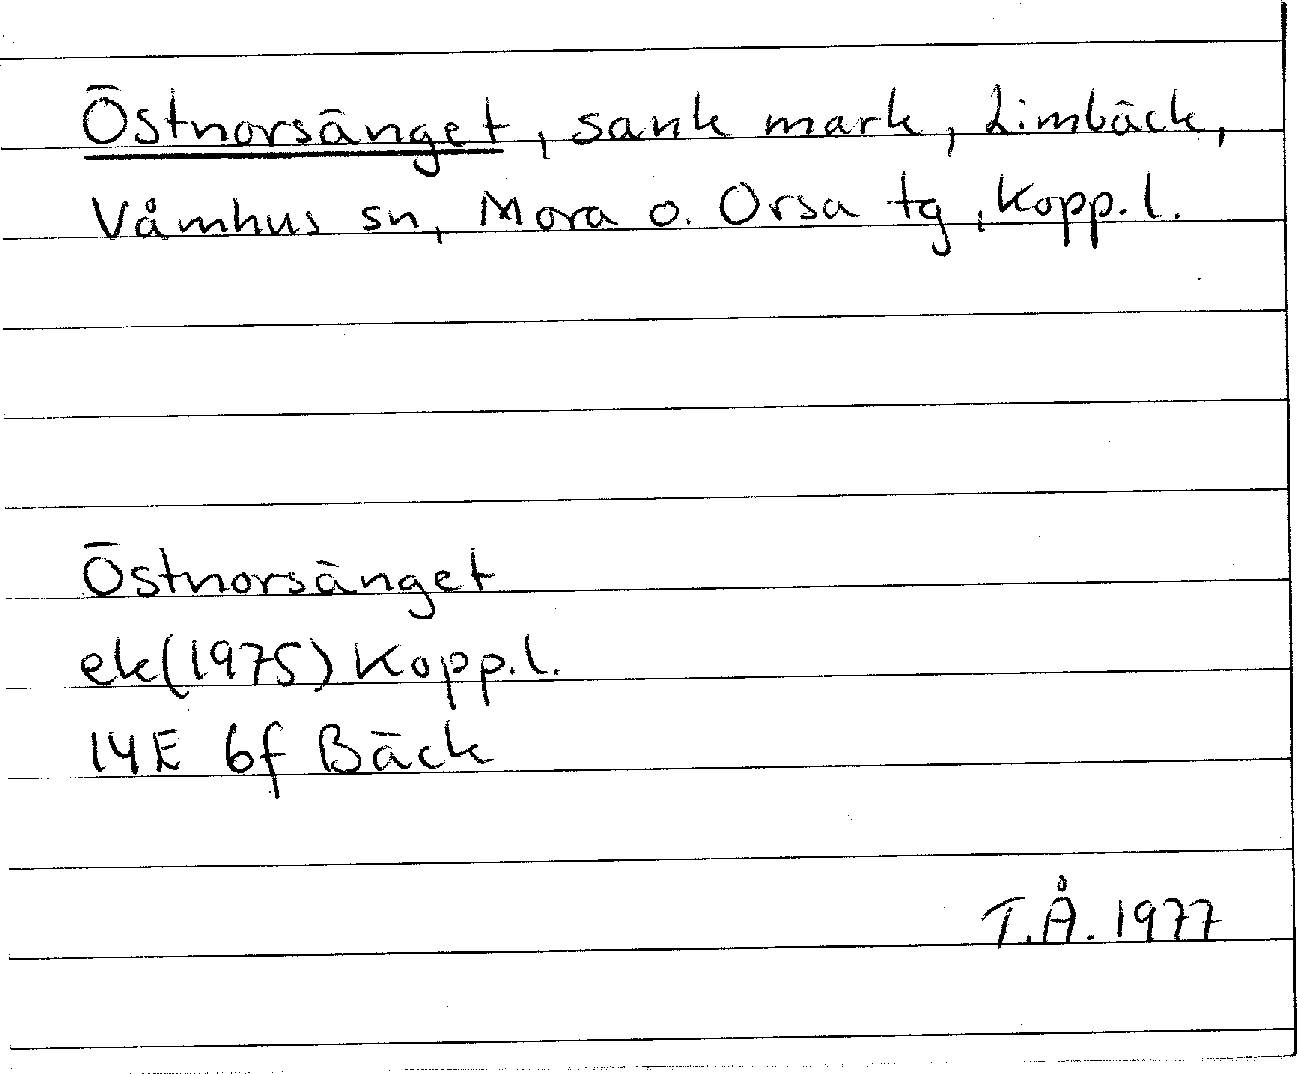 Östnorsänget, sank mark, Limbäck,
Våmhus sn, Mora o. Orsa tg, Kopp.l.
Östnorsänget
ek(1975) Kopp.l.
14E 6f Bäck
T.Å. 1977